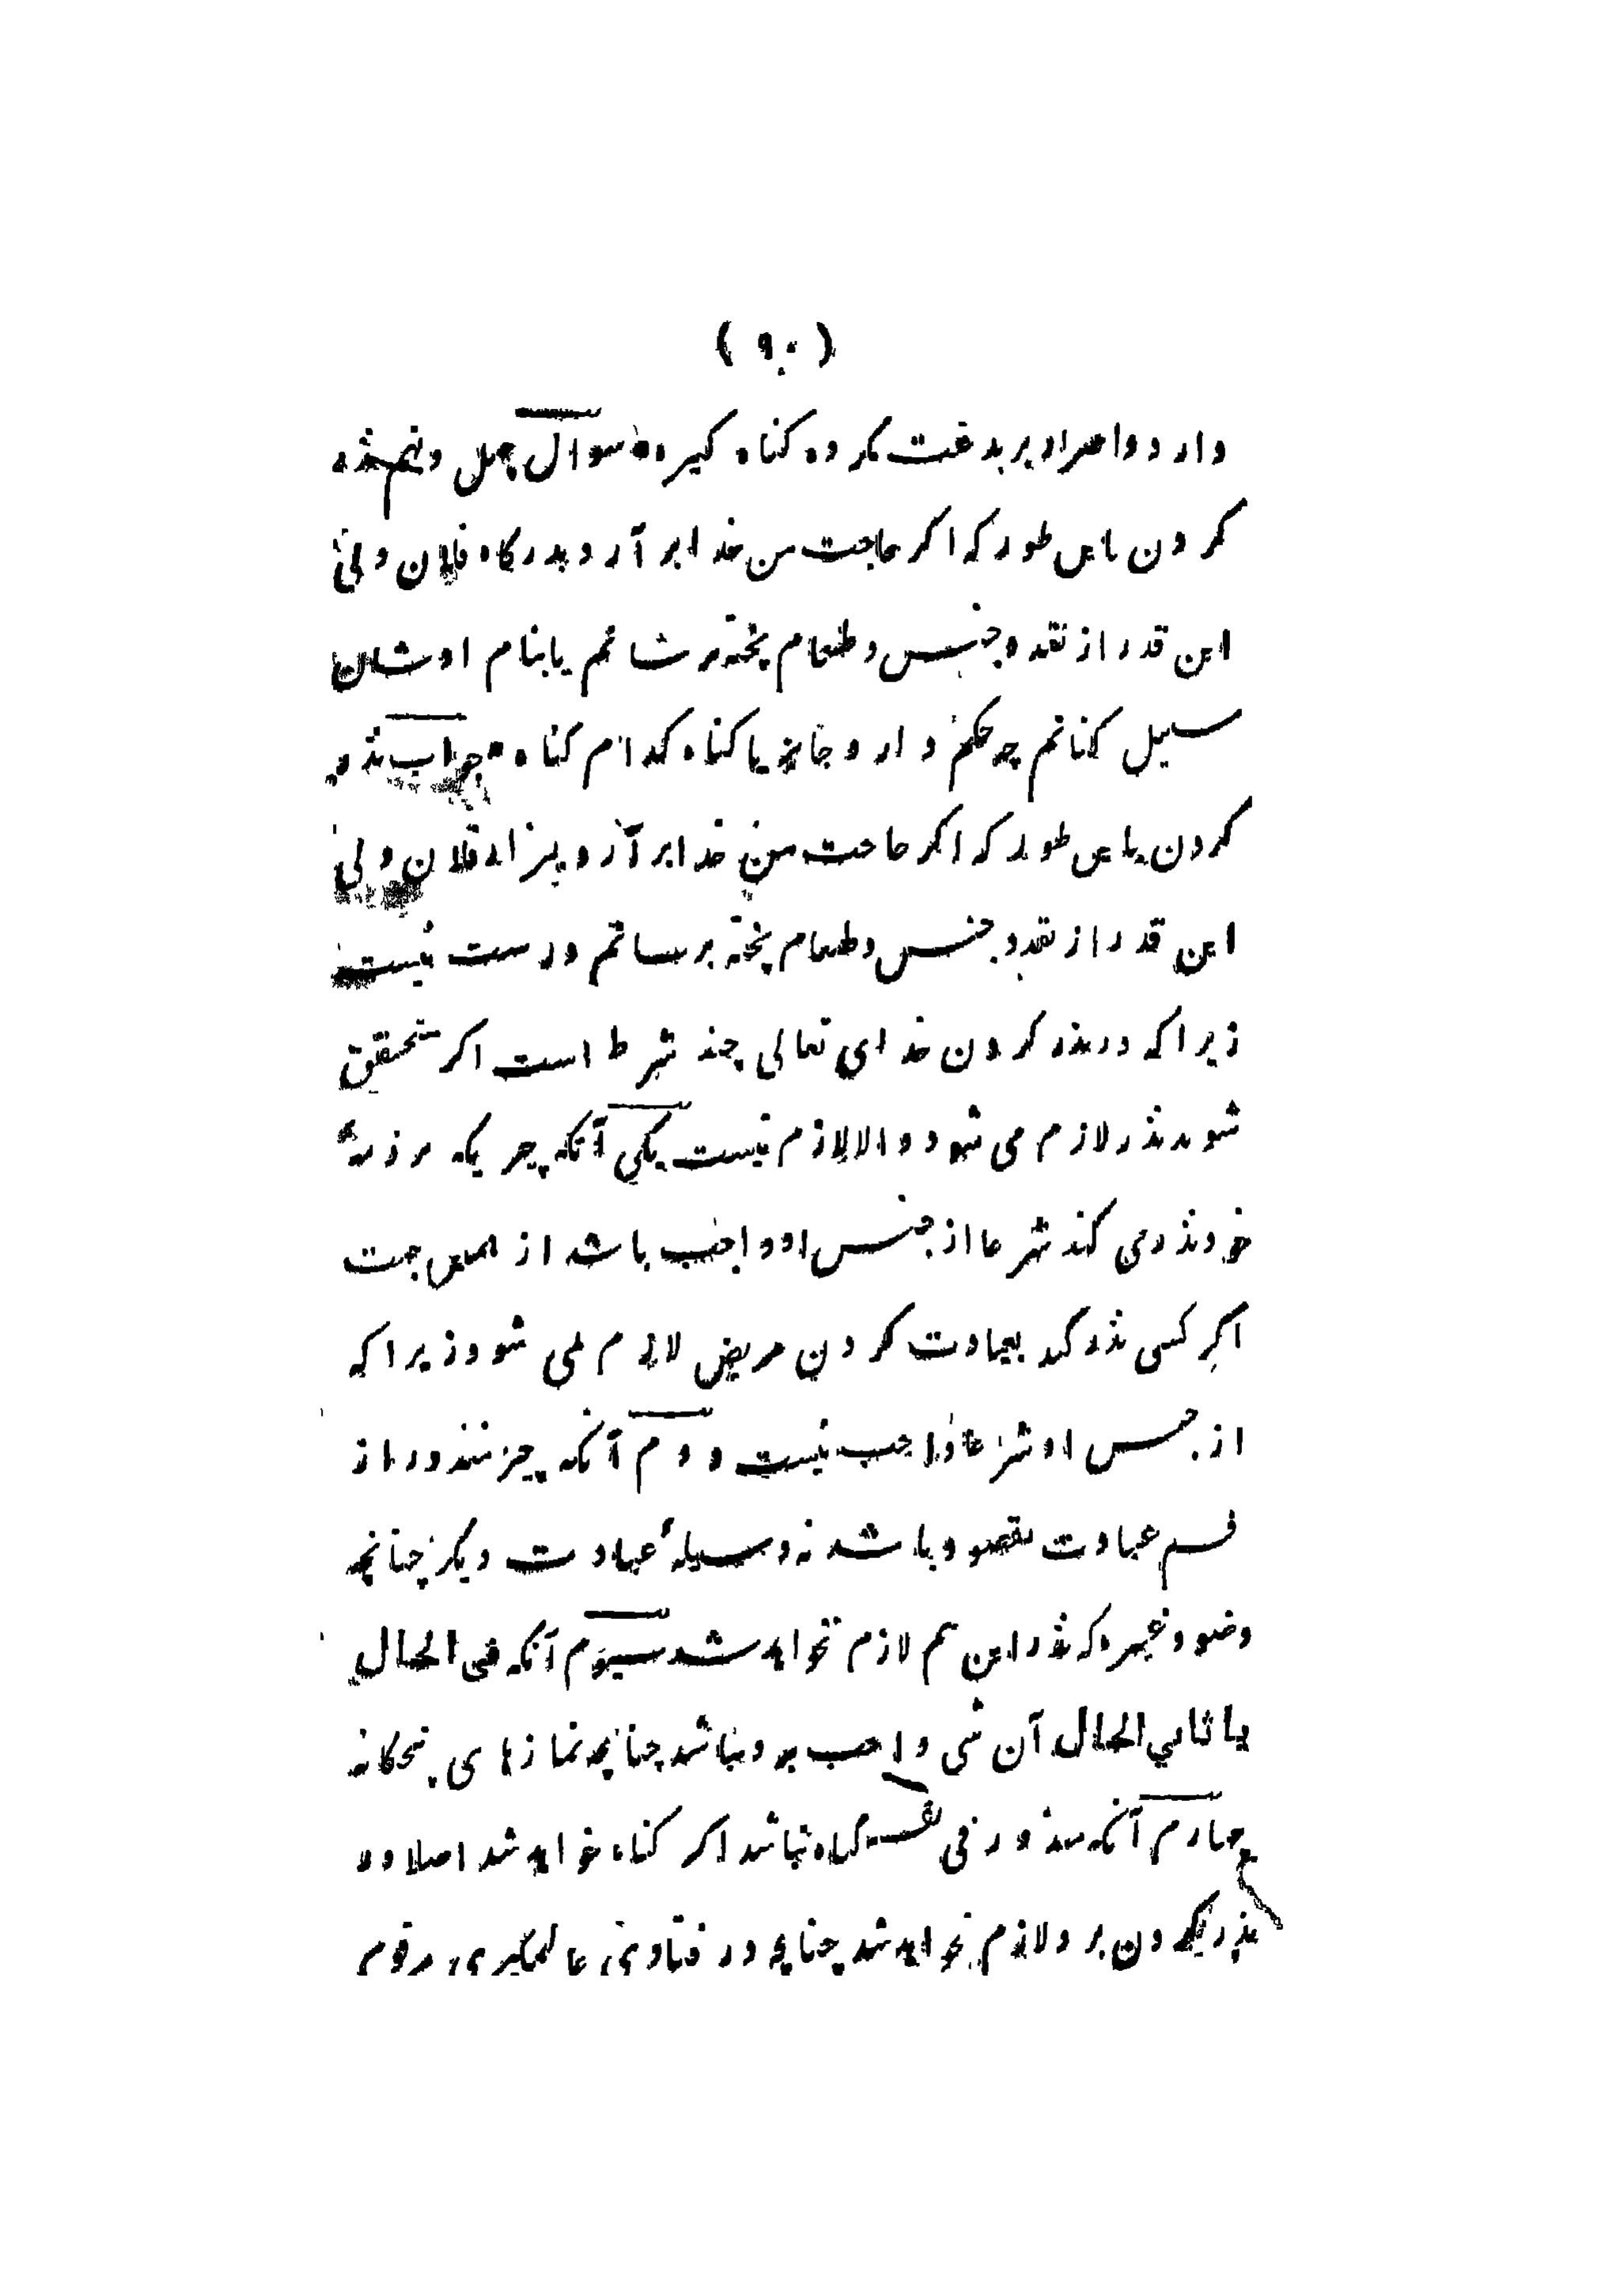 ( ۹۰ )
دارد و اصرار بر بدعت مکروه گناه کبیره سوال چهل و نهم نذر
کردن باین طور که اگر حاجت من خدا برآرد بدرگاه فلان ولی
این قدر از نقد و جنس و طعام پخته رسانم یا بنام اوشان
سبیل کنانم چه حکم دارد جائز یا گناه کدام گناه جواب نذر
کردن باین طور که اگر حاجت من خدا برآرد بمزار فلان ولی
این قدر از نقد و جنس و طعام پخته برسانم درست نیست
زیرا که در نذر کردن خدای تعالی چند شرط است اگر متحقق
شوند نذر لازم می شود و الا لازم نیست یکی آنکه چیزیکه بر ذمهٔ
خود نذر می کند شرعا از جنس او واجب باشد از همین جهت
اگر کسی نذر کند بعیادت کردن مریض لازم نمی شود زیرا که
از جنس او شرعا واجب نیست دوم آنکه چیز منذور از
قسم عبادت مقصود باشد نه وسیلهٔ عبادت دیگر چنانچه
وضو و غیره که نذر این هم لازم نخواهد شد سیوم آنکه فی الحال
یا ثانی الحال آن شی واجب برو نباشد چنانچه نمازهای پنجگانه
چهارم آنکه منذور فی نفسه گناه نباشد اگر گناه خواهد شد اصلا در
نذر کردن برو لازم نخواهد شد چنانچه در فتاوی عالمگیری مرقوم